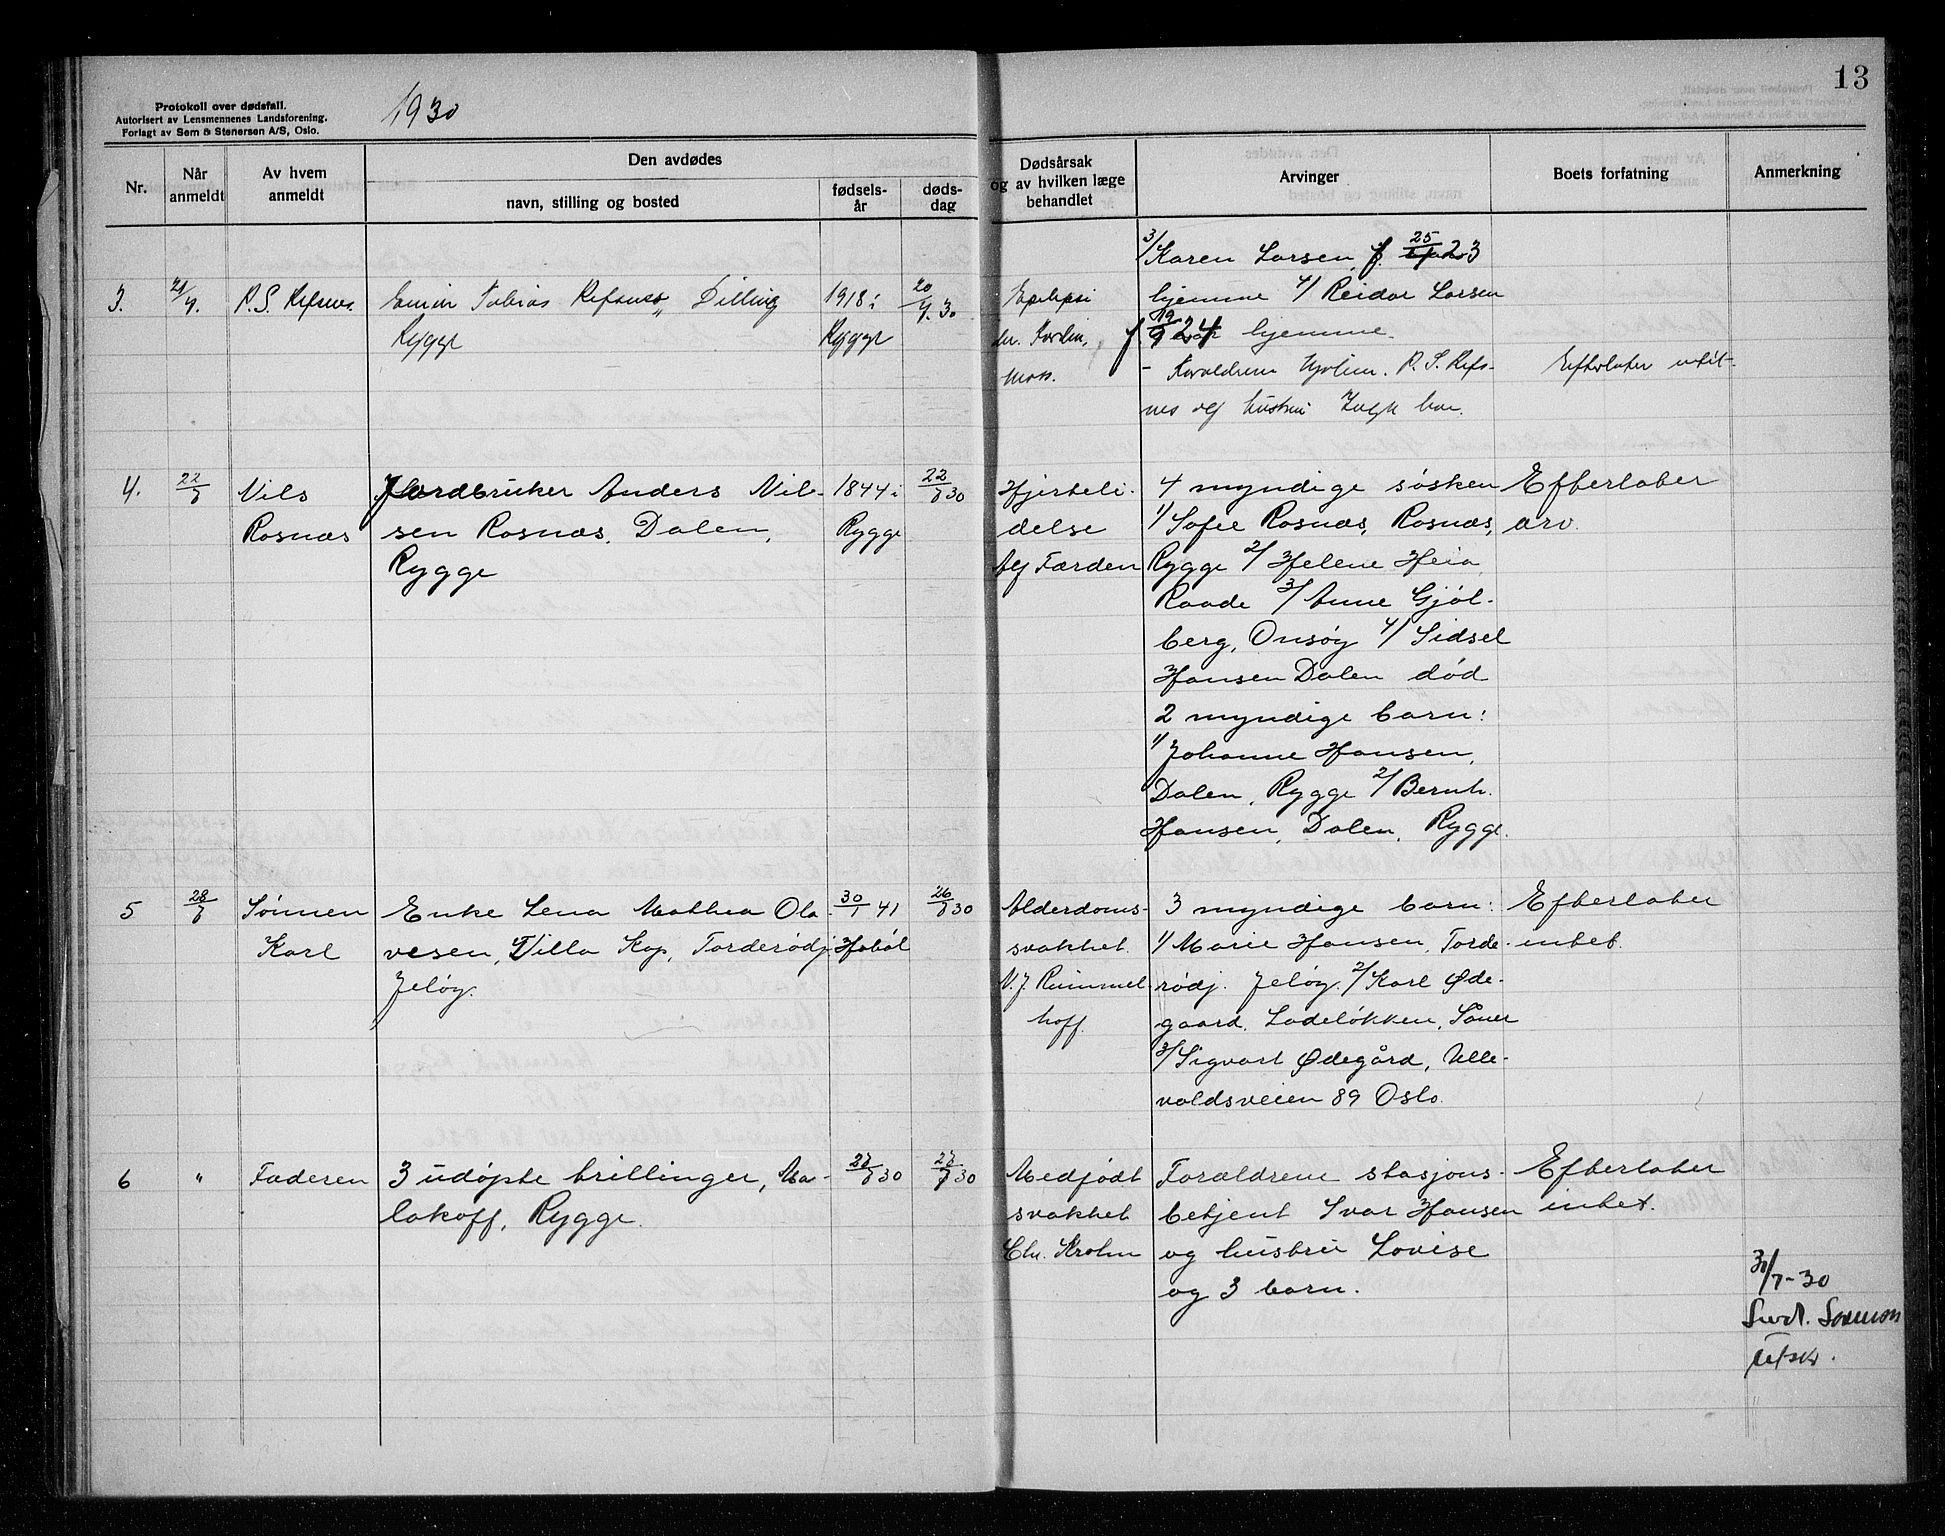 13
Protokoll over dødsfall.
Autorisert av Lensmennenes Landsforening.
Forlagt av Sem & Stenersen A/S, Oslo.
1930
Nr.
Når
anmeldt
Av hvem
anmeldt
Den avdødes
navn, stilling og bosted
fødsels-
år
døds-
dag
Dødsårsak
og av hvilken læge
behandlet
Arvinger
Boets forfatning
Anmerkning
3/ Karen Larsen, f. 25/ 23
hjemme 4/ Reidar Larsen
f 19/9 24 hjemme.
3.
R. S. Refsnes.
Tobias Refsnes, Dilling
Rygge
1918 i
Rygge
20/ 30
Epilepsi
Moss.
- Foreldrene R. S. Refs-
nes og hustru
Efterlater
4.
22/
Nils
Rosnæs
Jordbruker Anders Nil-
sen Rosnæs, Dalen,
Rygge
1844 i
Rygge
22/ 30
Hjerteli-
delse
Alf Færden
4 myndige søsken
1/ Sofie Rosnæs, Rosnæs,
Rygge 2/ Helene Heia,
Raade 3/ Anne Gjøl-
berg, Onsøy 4/ Sidsel
Hansen Dalen død
2 myndige barn:
1/ Johanne Hansen,
Dalen, Rygge 2/ Bernh.
Hansen, Dalen, Rygge.
Efterlater
arv.
5
28/
Sønnen
Karl
Enke Lena Mathea Ola-
vesen, Villa Kap, Torderødj.
Jeløy.
30/1 41
Hobøl
26/ 30
Alderdoms-
svakhet.
N. J. Rummel-
hoff.
3 myndige barn:
1/ Marie Hansen, Torde-
rødj. Jeløy. 2/ Karl Øde-
gaard, Ladeløkken, Såner
3/ Sigvart Ødegård, Ulle-
valdsveien 89 Oslo.
Efterlater
intet.
6
"
Faderen
3 udøpte trillinger, Ma-
lakoff, Rygge.
27/ 30
27/ 30
Medfødt
svakhet
Chr. Krohn
Forældrene stasjons-
betjent Ivar Hansen
og hustru Lovise
og 3 barn.
Efterlater
intet.
/7-30
Utskr.